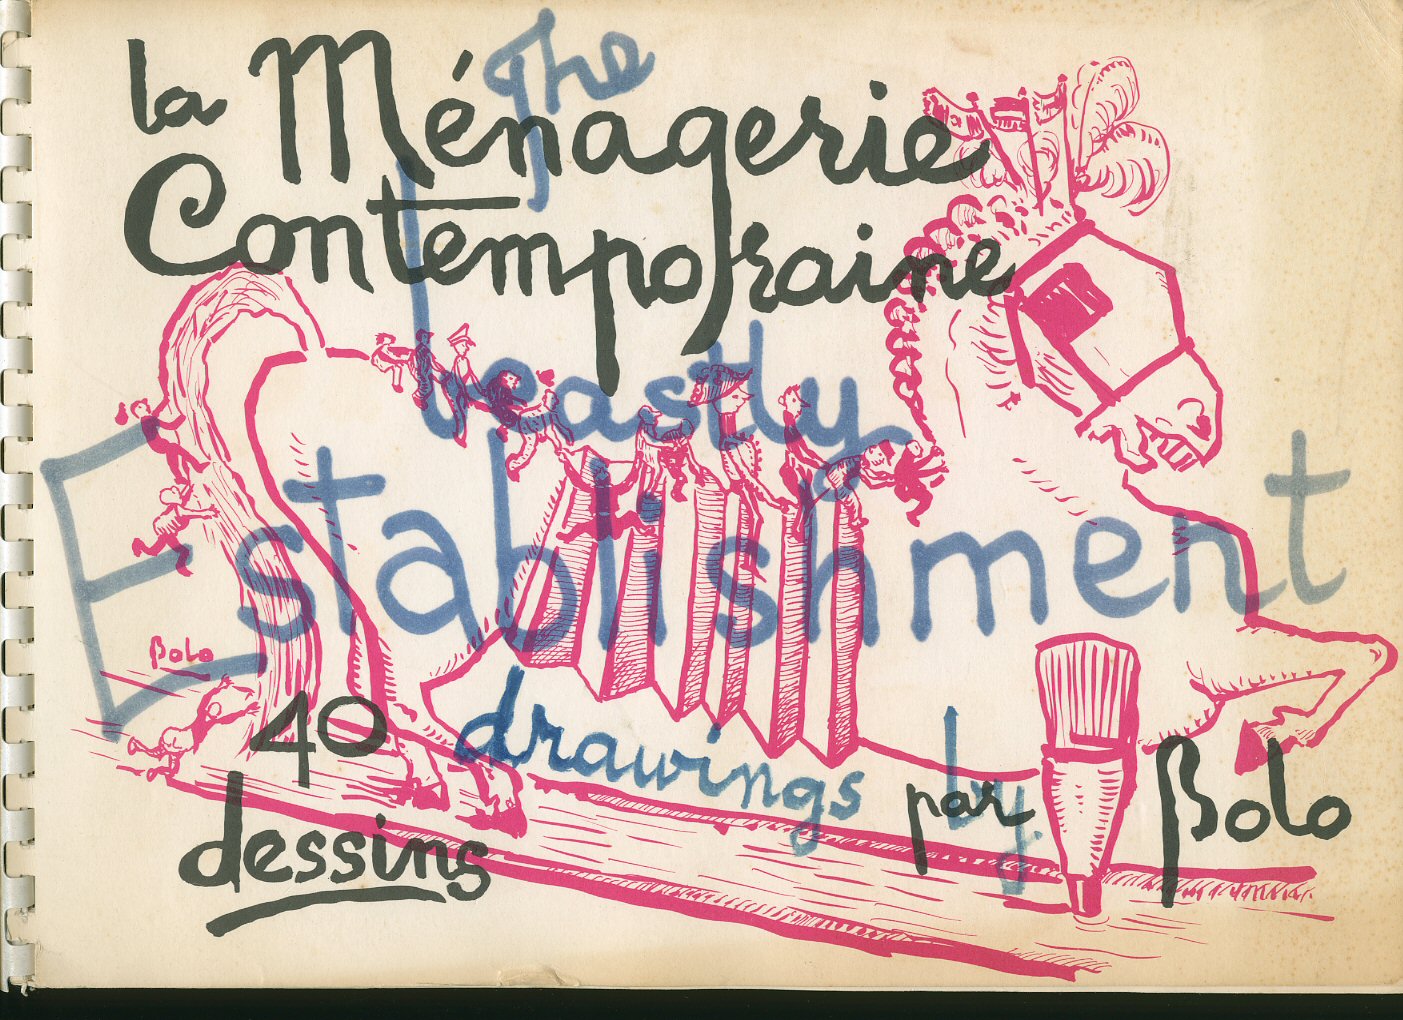 la Ménagerie
Contemporaine
The
beastly
Establishment
Bolo
40
dessins
drawings
par Bolo
by